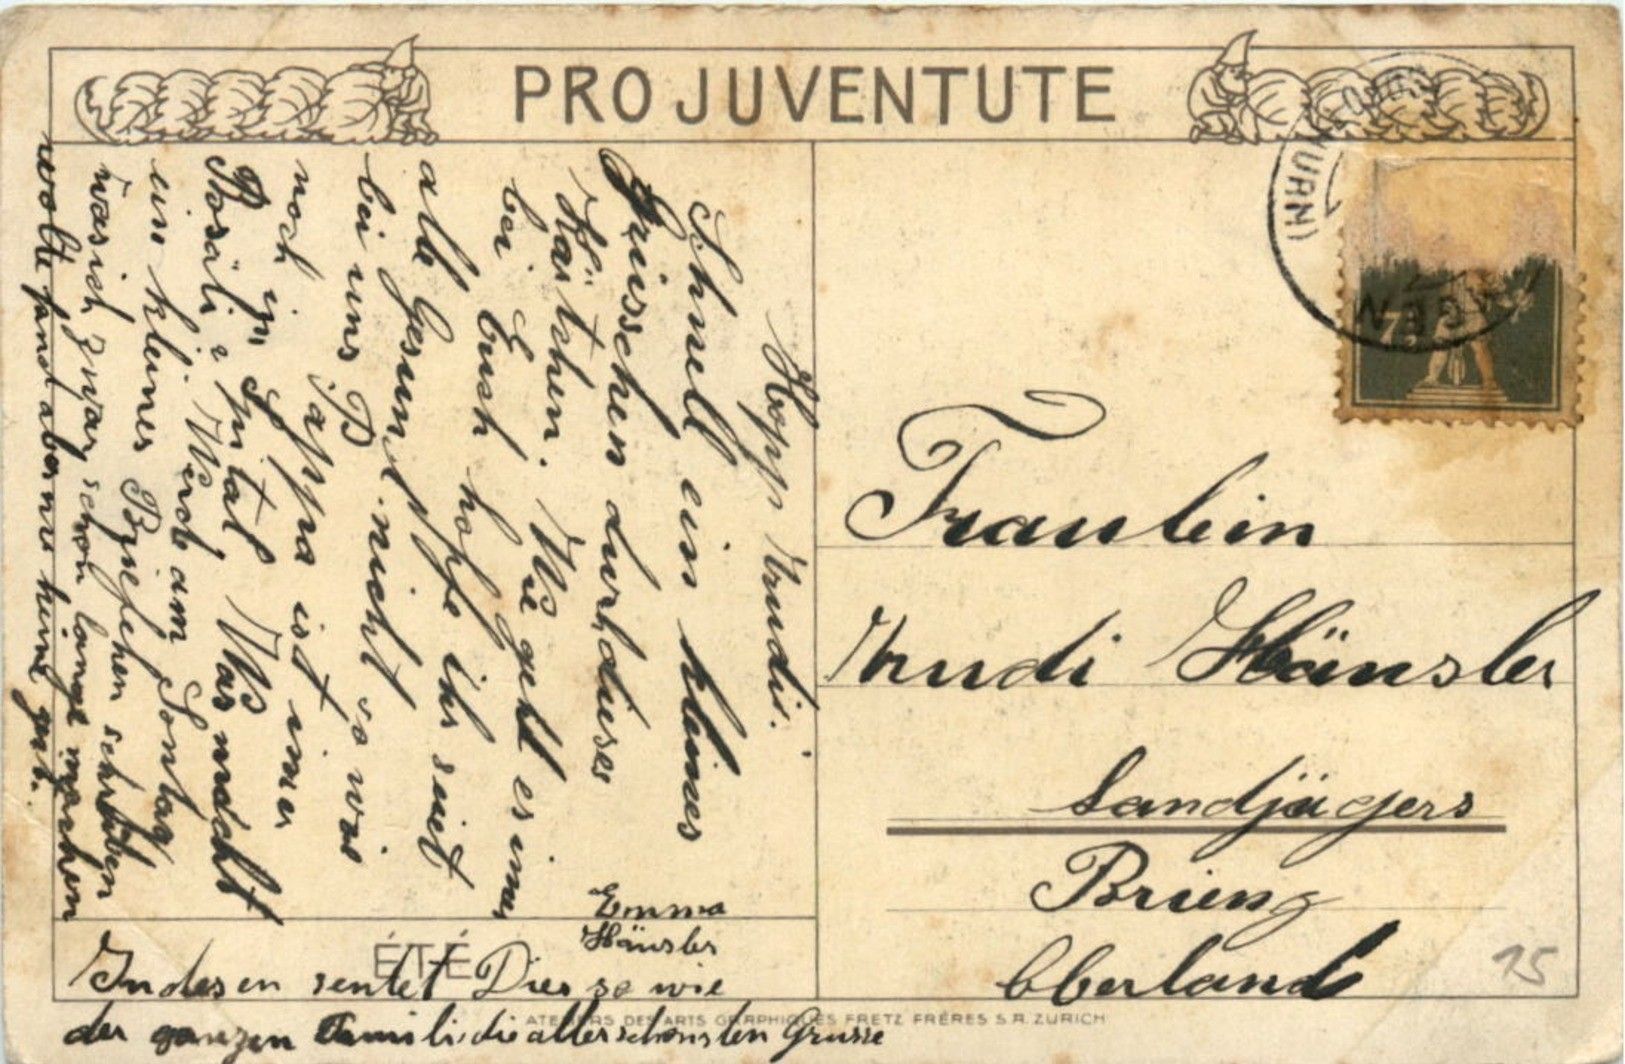 PRO JUVENTUTE
Hopp Trudi.
Schnell ein kleines
Grüsschen durch dieses
Kärtchen. Wie geht es imer
bei Euch hoffe ihr seiet
alle Gesund
bei uns nicht so wie
noch Pappa ist imer
im Spital. Was macht
Rosäli? Werde am Sontag
ein kleines Briefchen schreiben
was ich zwar schon lange machen
wolte fand aber nie keine zeit.
Emma
Hänsler
ÉTÉ
Indesen sentet Dier so wie
der ganzen Famili die allerschönsten Grüsse
ATELIERS DES ARTS GRAPHIQUES FRETZ FRÈRES S.A. ZURICH
Fraulein
Trudi Hänsler
Landjägers
Brienz
Oberland
7½
15